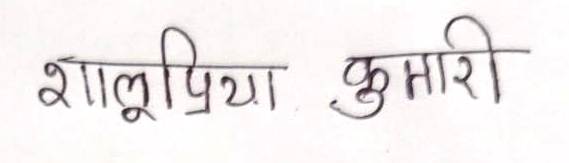 शालूप्रिया कुमारी